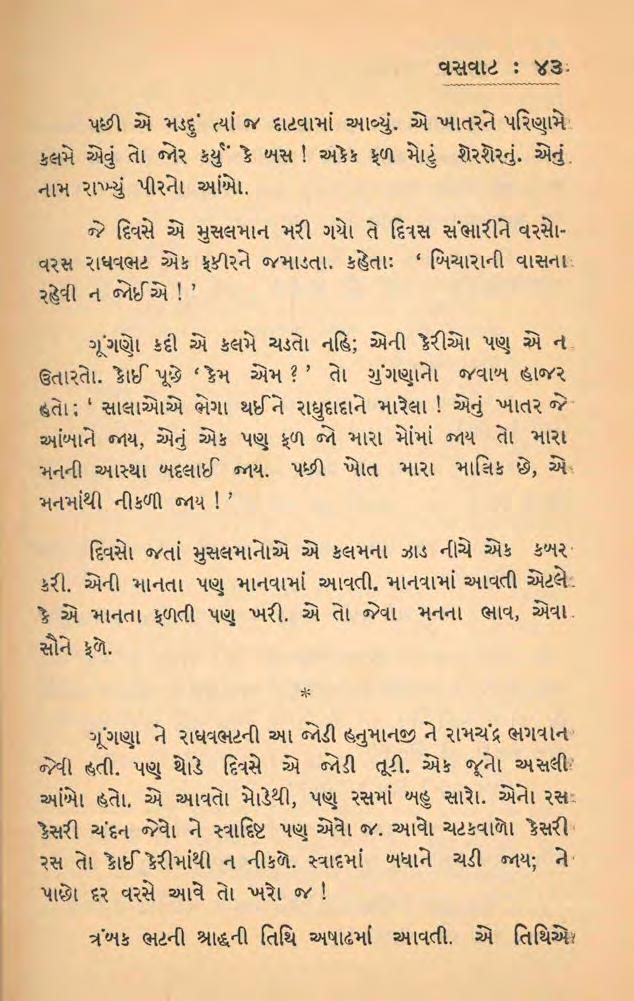 વસવાટ : ૪૩
પછી એ મડદું ત્યાં જ દાટવામાં આવ્યું. એ ખાતરને પરિણામે
કલમે એવું તો જોર કર્યું કે બસ ! અકેક ફળ મોટું શેરશેરનું. એનું
નામ રાખ્યું પીરનો આંબો.
જે દિવસે એ મુસલમાન મરી ગયો તે દિવસ સંભારીને વરસો-
વરસ રાઘવભટ એક ફકીરને જમાડતા. કહેતાઃ ‘ બિચારાની વાસના
રહેવી ન જોઈએ ! ’
ગૂંગણો કદી એ કલમે ચડતો નહિ; એની કેરીઓ પણ એ ન
ઉતારતો. કોઈ પૂછે ‘ કેમ એમ ? ’ તો ગુંગણાનો જવાબ હાજર
હતો; ‘ સાલાઓએ ભેગા થઈને રાઘુદાદાને મારેલા ! એનું ખાતર જે
આંબાને જાય, એનું એક પણ ફળ જો મારા મોંમાં જાય તો મારા
મનની આસ્થા બદલાઈ જાય. પછી ખોત મારા માલિક છે, એ
મનમાંથી નીકળી જાય ! ’
દિવસો જતાં મુસલમાનોએ એ કલમના ઝાડ નીચે એક કબર
કરી. એની માનતા પણ માનવામાં આવતી. માનવામાં આવતી એટલે
કે એ માનતા ફળતી પણ ખરી. એ તો જેવા મનના ભાવ, એવા
સૌને ફળે.
*
ગૂંગણા ને રાઘવભટની આ જોડી હનુમાનજી ને રામચંદ્ર ભગવાન
જેવી હતી. પણ થોડે દિવસે એ જોડી તૂટી. એક જૂનો અસલી
આંબો હતો. એ આવતો મોડેથી, પણ રસમાં બહુ સારો. એનો રસ
કેસરી ચંદન જેવો ને સ્વાદિષ્ટ પણ એવો જ. આવો ચટકવાળો કેસરી
રસ તો કોઈ કેરીમાંથી ન નીકળે. સ્વાદમાં બધાને ચડી જાય; ને
પાછો દર વરસે આવે તો ખરો જ !
ત્રંબક ભટની શ્રાદ્ધની તિથિ અષાઢમાં આવતી. એ તિથિએ